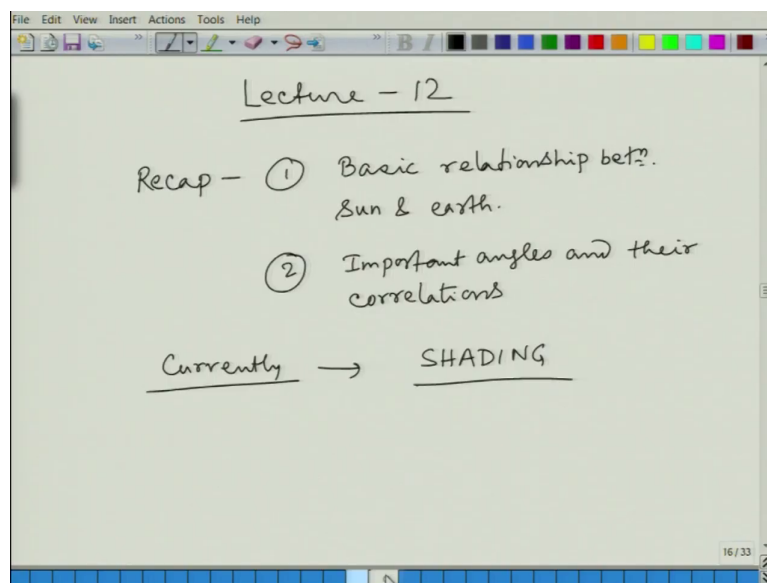 File Edit View Insert Actions Tools Help
B I
Lecture - 12
Recap - ① Basic relationship betn.
Sun & earth.
② Important angles and their
correlations
Currently → SHADING
16 / 33